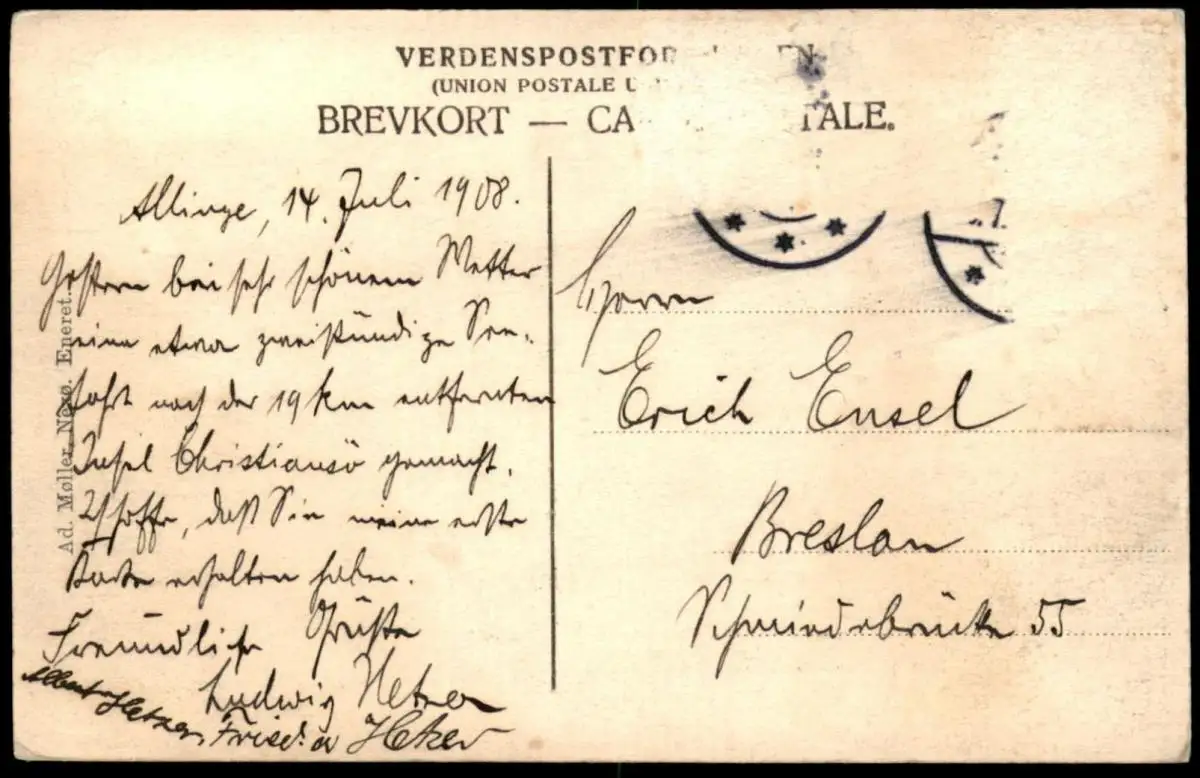 VERDENSPOSTFOR EN
(UNION POSTALE U
BREVKORT — CA TALE.
Allinge, 14. Juli 1908.
Gestern bei sehr schönem Wetter
eine etwa zweistündige See-
fahrt nach der 19 km entfernten
Insel Christiansö gemacht.
hoffe, daß Sie meine erste
Karte erhalten haben.
Freundliche Grüße
Ludwig Hetzer
Albert Hetzer, Frieda Hetzer
Ad. Møller, Nexø. Eneret.
Herrn
Erich Ensel
Breslau
Schmiedebrücke 55